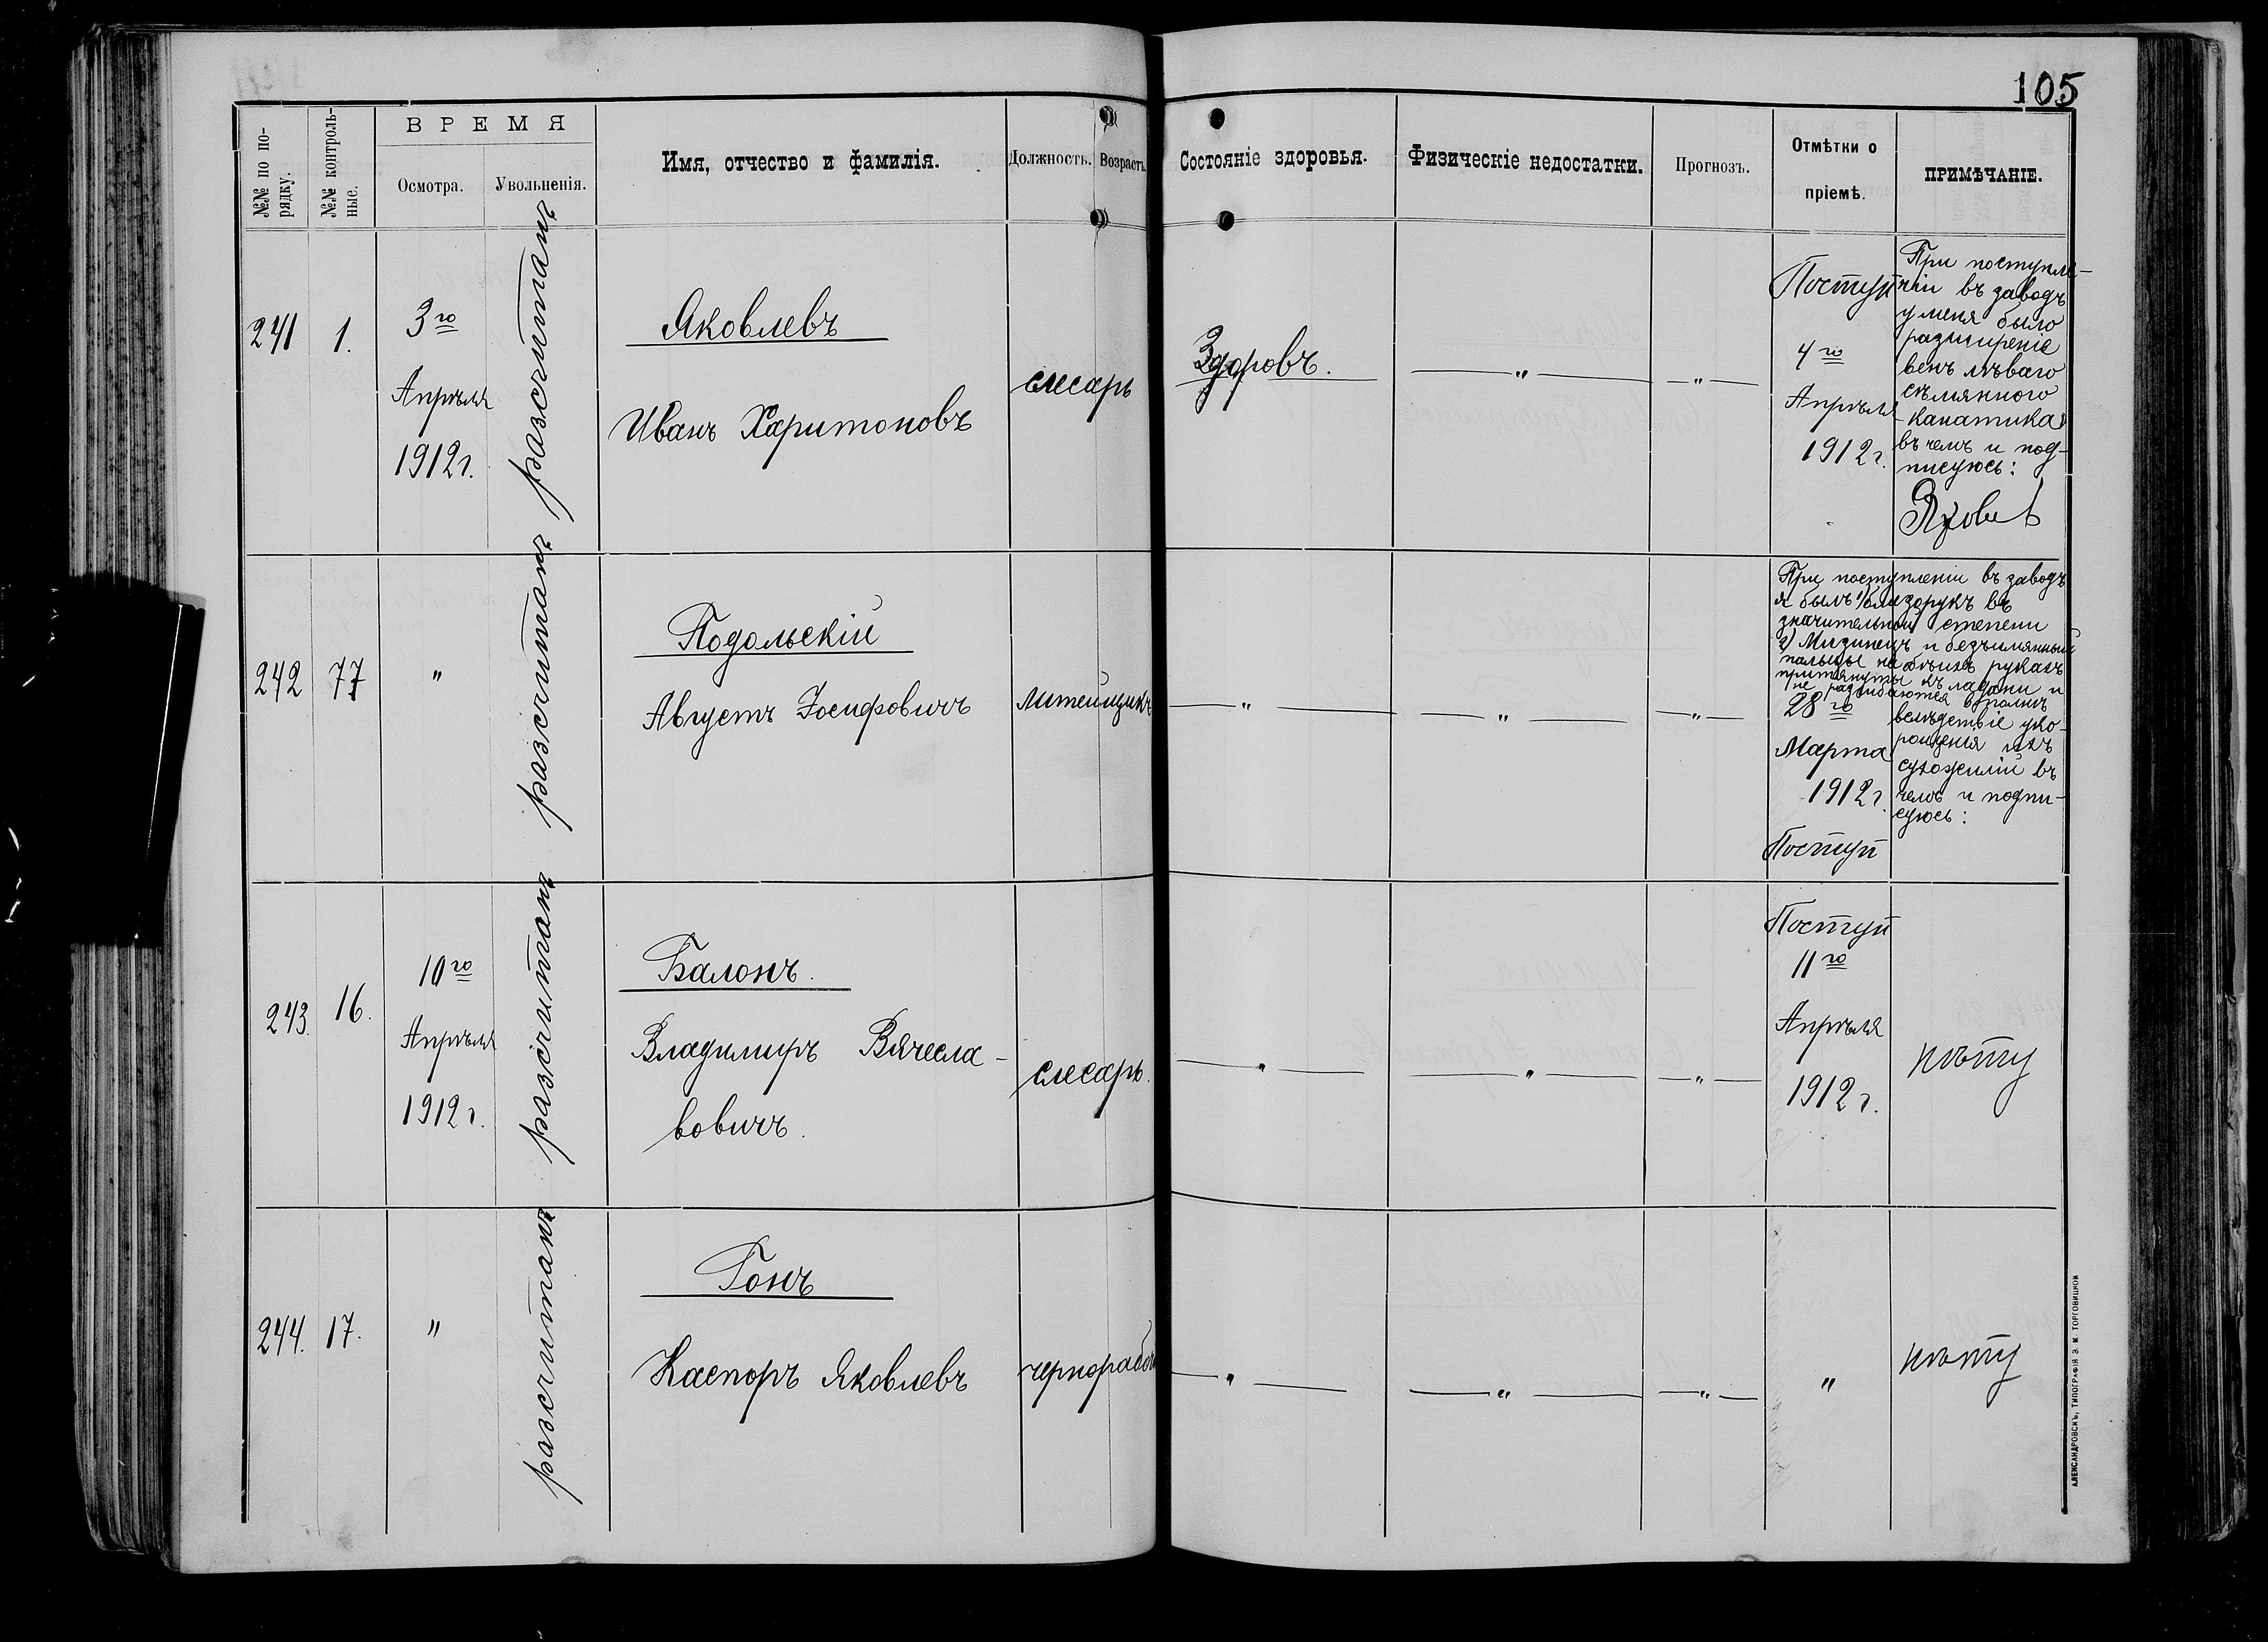 105
№№ по по-
рядку.
№№ контроль-
ные.
ВРЕМЯ
Осмотра.
Увольненія.
Имя, отчество и фамилія.
Должность.
Возрастъ.
Состояніе здоровья.
Физическіе недостатки.
Прогнозъ.
Отмѣтки о
пріемѣ.
ПРИМѢЧАНІЕ.
241
1.
3го
Апрѣля
1912 г.
разсчитанъ
Яковлевъ
Иванъ Харитоновъ
слесарь
Здоровъ.
— " —
— " —
Поступ
4го
Апрѣля
1912 г.
При поступле-
ніи въ заводъ
у меня было
разширеніе
венъ лѣваго
сѣмянного
канатика
въ чемъ и под-
писуюсь:
242
77
"
разсчитанъ
Подольскій
Августъ Іосифовичъ
литейщикъ
— " —
— " —
— " —
При поступленіи въ заводъ
я былъ 1) близорукъ въ
значительной степени
2) Мизинецъ и безъимянный
пальцы на обѣихъ рукахъ
притянуты къ ладони и
не разгибаются вполнѣ
вслѣдствіе уко-
роченія ихъ
сухожилій въ
чемъ и подпи-
суюсь:
28го
Марта
1912 г.
Поступ
243.
16.
10го
Апрѣля
1912 г.
разсчитанъ
Балонъ.
Владимиръ Вячесла-
вовичъ.
слесарь.
— " —
— " —
— " —
Поступ
11го
Апрѣля
1912 г.
нѣту
244.
17.
"
разсчитанъ
Гонъ
Каспоръ Яковлевъ
чернорабоч
— " —
— " —
— " —
"
нѣту
АЛЕКСАНДРОВСКЪ, ТИПОГРАФІЯ Э. М. ТОРГОВИЦКОЙ